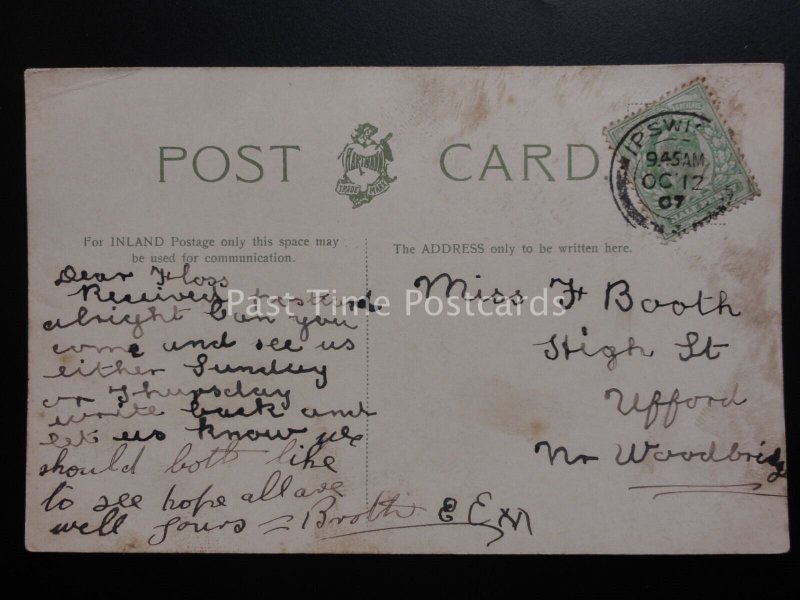 POST CARD
HARTMANN
TRADE MARK
IPSWIC
9.45AM
OC 12
07
For INLAND Postage only this space may
be used for communication.
The ADDRESS only to be written here.
Dear Floss
Received postcard
alright can you
come and see us
either Sunday
or Thursday
write back and
let us know we
should both like
to see hope all are
well yours =
Miss F Booth
High St
Ufford
Nr Woodbridge
Past Time Postcards